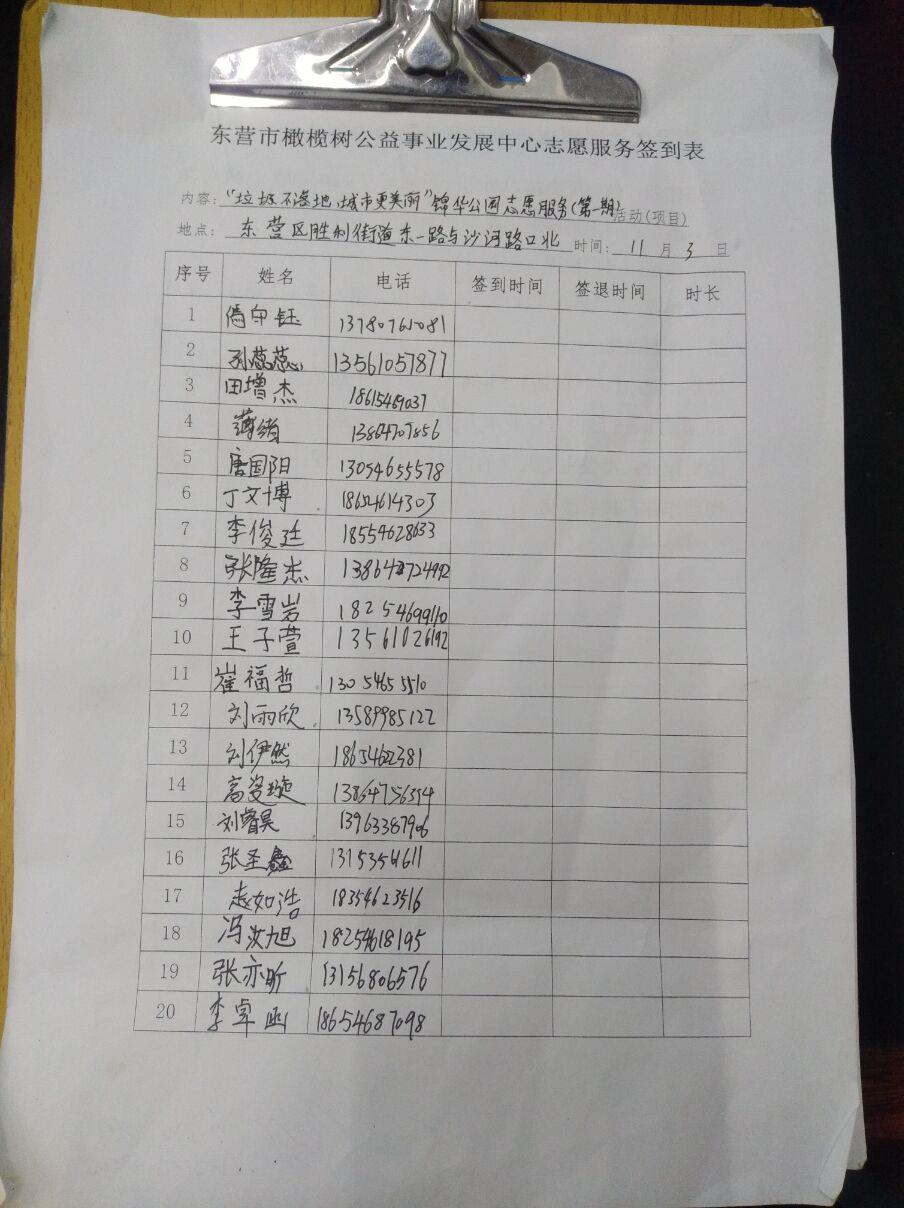 东营市橄榄树公益事业发展中心志愿服务签到表
内容：“垃圾不落地，城市更美丽”锦华公园志愿服务（第一期）活动(项目)
地点： 东营区胜利街道东一路与沙河路口北 时间： 11 月 3 日
序号 姓名 电话 签到时间 签退时间 时长
1 13780761081
2 孙蕊蕊 13561057877
3 田增杰 18615469037
4 13864707856
5 唐国阳 13054655578
6 丁文博 18652614303
7 李俊廷 18554628633
8 张隆杰
9 李雪岩 18254699110
10 王子萱 13561026192
11 崔福哲 13054655510
12 刘雨欣 13589985122
13 刘伊然 18654622381
14 高姿璇 13864756354
15 刘睿昊 13963387906
16 张圣鑫
17 赵如浩 18354623516
18 冯汝旭 18254618195
19 张亦昕 13156806576
20 李卓函 18654687098